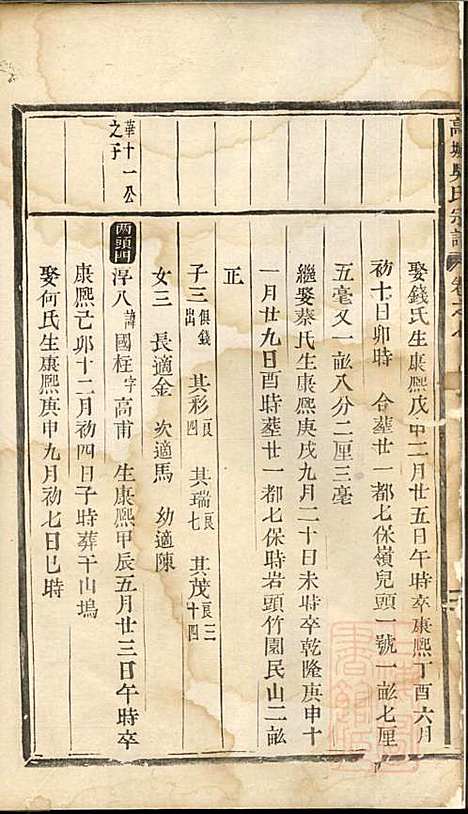 高城吳氏宗譜 卷之
娶錢氏生康熙戊申二月廿五日午時卒康熙丁酉六月
初十日卯時 合葬廿一都七保嶺兒頭一號一畝七厘
五毫又一畝八分二厘三毫
繼娶蔡氏生康熙庚戌九月二十日未時卒乾隆庚申十
一月廿九日酉時葬廿一都七保時岩頭竹園民山二畝
正
子三 俱錢出 其彩 艮四 其瑞 艮七 其茂 艮二十四
女三 長適金 次適馬 幼適陳
華十一公之子
兩頭四
浮八 諱 國柱 字 高甫 生康熙甲辰五月廿三日午時卒
康熙己卯十二月初四日子時葬干山塢
娶何氏生康熙庚申九月初七日巳時